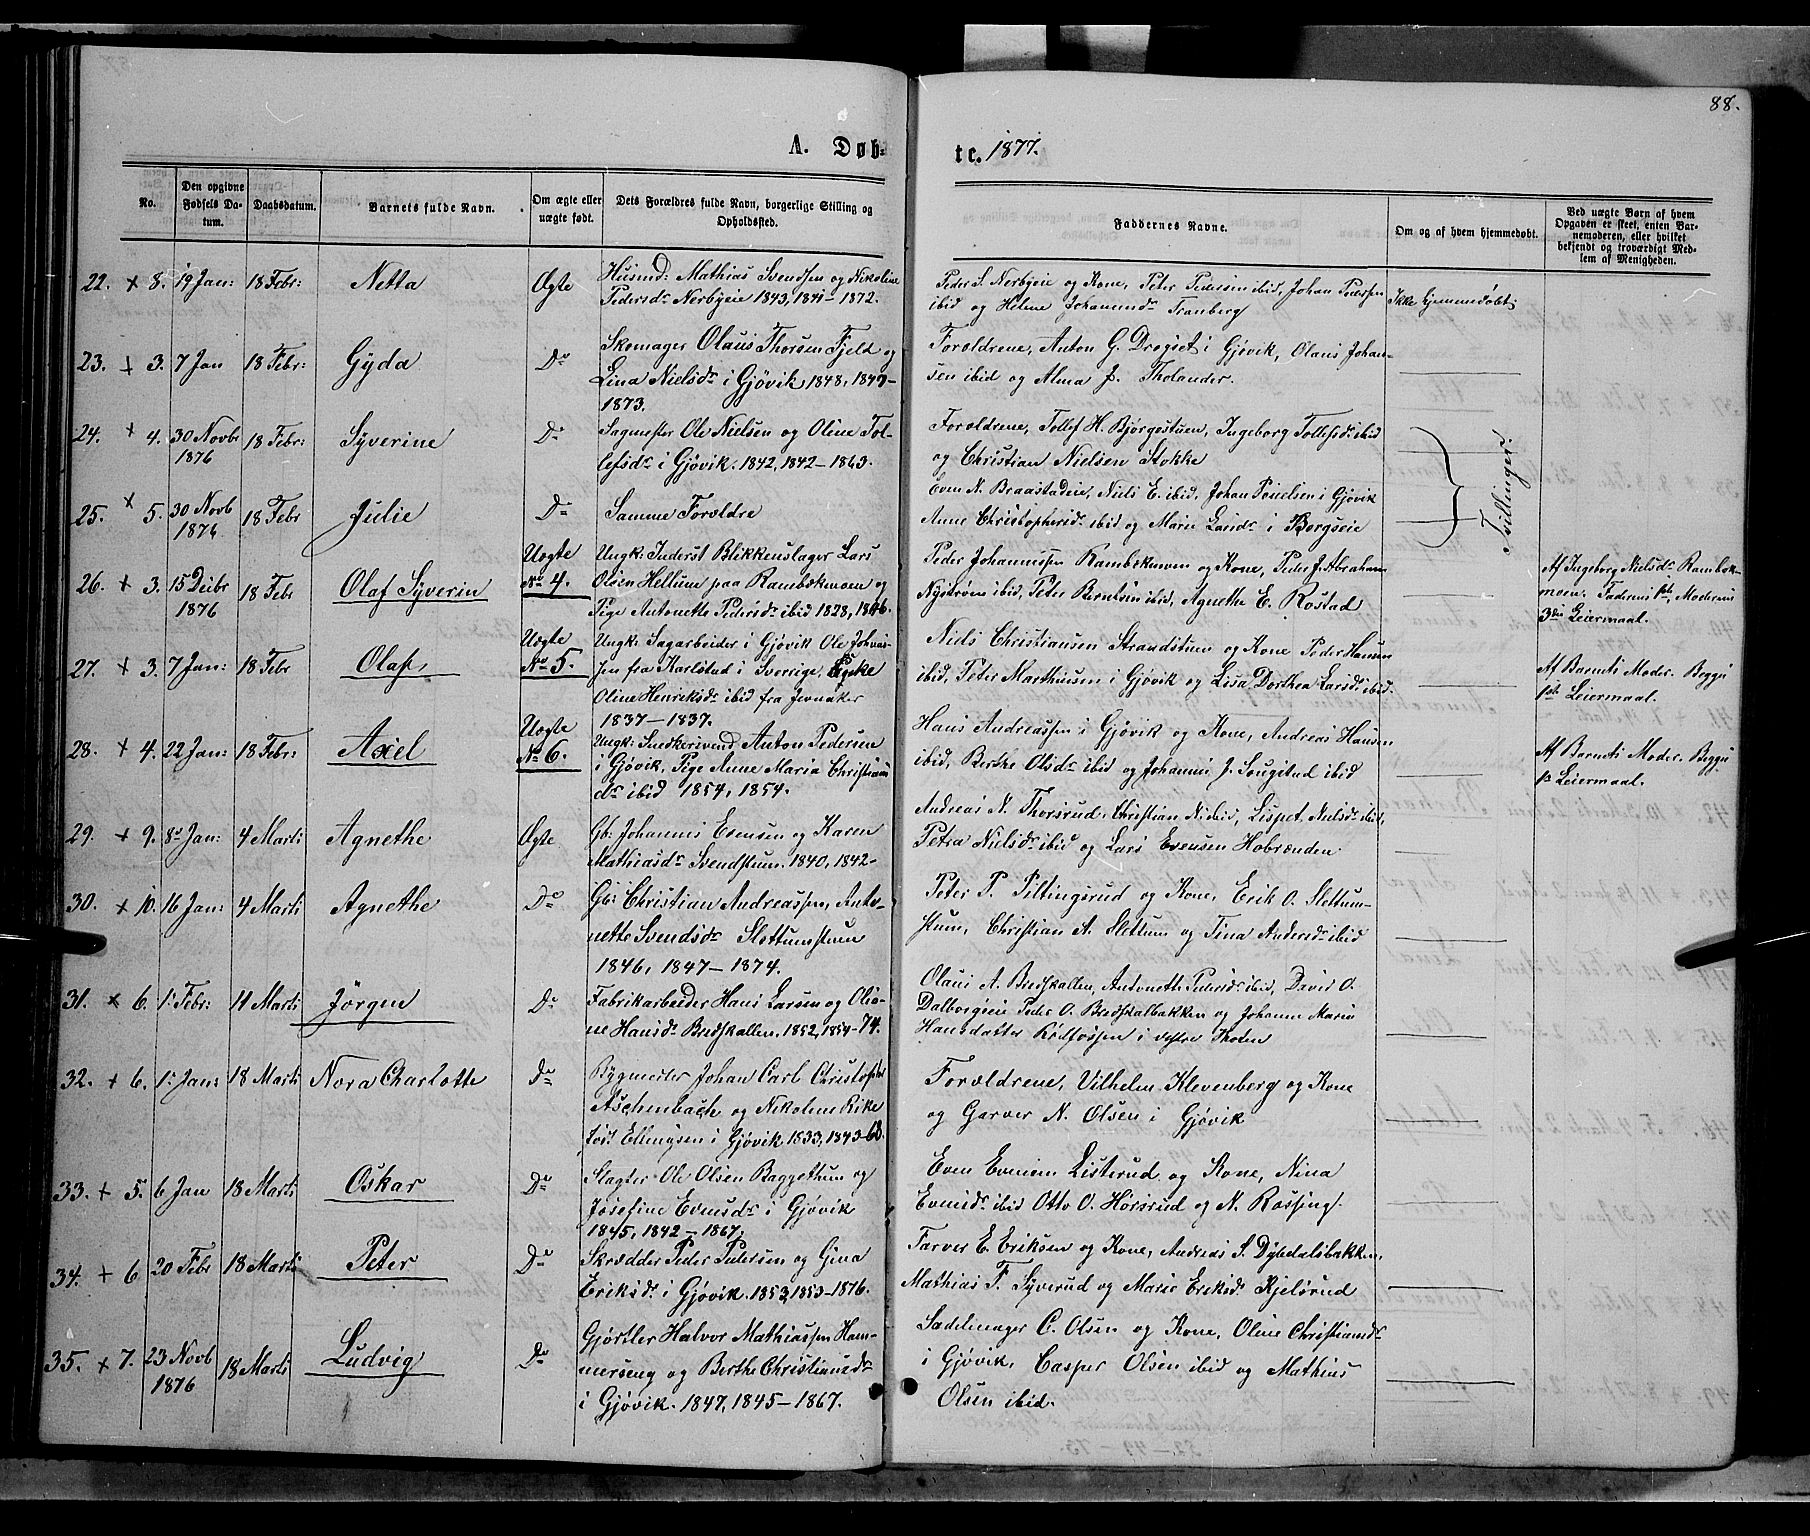 88.
A. Døb-
te. 1877.
No.
Den opgivne Fødsels Da-
tum.
Daabsdatum.
Barnets fulde Navn.
Om ægte eller
uægte født.
Dets Forældres fulde Navn, borgerlige Stilling og
Opholdssted.
Faddernes Navne.
Om og af hvem hjemmedøbt.
Ved uægte Børn af hvem
Opgaven er skeet, enten Bar-
nemoderen, eller hvilket
bekjendt og troværdigt Med-
lem af Menigheden.
22. + 8. 19 Jan: 18 Febr: Netta Ægte
Husmd: Mathias Svendsen og Nikoline
Pedersdr Nerbyeie 1843, 1841-1872.
Peder S. Nerbyeie og Kone, Peter Pedersen ibid, Johan Pedersen
ibid og Helene Johannesdr Tranberg
Ikke hjemmedøbt
23. + 3. 7 Jan 18 Febr: Gyda Do
Skomager Olaus Thorsen Fjeld og
Lina Nielsdr i Gjøvik 1848, 1847-
1873.
Forældrene, Anton G. Drogset i Gjøvik, Olaus Johan-
sen ibid og Alma J. Tholander.
24. + 4. 30 Novbr 1876 18 Febr: Syverine Do
Sagmester Ole Nielsen og Oline Tol-
lefsdr i Gjøvik. 1842, 1842-1863.
Forældrene, Tollef H. Bjørgestuen, Ingeborg Tollefsdr ibid
og Christian Nielsen Stokke
Tvillinger.
25. + 5. 30 Novb 1876 18 Febr Julie Do
Samme Forældre
Even N. Braastadeie, Niels E. ibid, Johan Poulsen i Gjøvik
Anne Christophersdr ibid og Marie Larsdr i Bergseie
26. + 3. 15 Decbr 1876 18 Febr Olaf Syverin
Uægte
No 4.
Ungk: Inderst Blikkenslager Lars
Olsen Hellum paa Rambekmoen og
Pige Antonette Pedersdr ibid 1828, 1846.
Peder Johannessen Rambekmoen og Kone, Peder J. Abraham
Nystrøm ibid, Peter Berntsen ibid, Agnethe E. Rostad
Af Ingeborg Nielsdr Rambek-
moen. Faderens 1ste, Moderens
3die Leiermaal.
27. + 3. 7 Jan: 18 Febr Olaf
Uægte
No 5.
Ungk: Sagarbeider i Gjøvik Ole Johnas-
sen fra Karlstad i Sverige, Enke
Oline Henriksdr ibid fra Jevnaker
1837-1837.
Niels Christiansen Strandstuen og Kone Peder Hansen
ibid, Peter Marthusen i Gjøvik og Lisa Dorthea Larsdr ibid.
Af Barnets Moder. Begges
1ste Leiermaal.
28. + 4. 22 Jan: 18 Febr: Axel
Uægte
No 6.
Ungk: Snedkersvend Anton Pedersen
i Gjøvik, Pige Anne Maria Christians
dr ibid 1854, 1854.
Hans Andreassen i Gjøvik og Kone, Andreas Hansen
ibid, Berthe Olsdr ibid og Johannes J. Sougstad ibid
Af Barnets Moder. Begges
1ste Leiermaal.
29. + 9. 8de Jan: 4 Marti Agnethe Ægte
Gb: Johannes Evensen og Karen
Mathiasdr Svendstuen. 1840, 1842-
Andreas N. Thorsrud, Christian N. ibid, Lispet Nielsdr ibid,
Petra Nielsdr ibid og Lars Evensen Hobrænden.
30. + 10. 16 Jan: 4 Marti Agnethe Do
Gb: Christian Andreassen, Anto-
nette Svendsdr Slettumstuen
1846, 1847-1874.
Peter P. Piltingsrud og Kone, Erik O. Slettum-
stuen, Christian A. Slettum og Tina Andersdr ibid
31. + 6. 1: Febr: 11 Marti Jörgen Do
Fabrikarbeider Hans Larsen og Olia-
ne Hansdr Bredskallen. 1852, 1854-74.
Olaus A. Bredskallen, Antonette Pedersdr ibid, David O.
Dalborgeie Peder O. Bredskalbakken og Johanne Marie
Hansdatter Rødfossen i vestre Thoten
32. + 6. 1: Jan: 18 Marti Nora Charlotte Do
Bygmester Johan Carl Christofer
Aschenbach og Nikoline Rike
født Ellingsen i Gjøvik 1833, 1843-68.
Forældrene, Vilhelm Klevenberg og Kone
og Garver N. Olsen i Gjøvik
33. + 5. 6 Jan 18 Marti Oskar Do
Slagter Ole Olsen Baggethun og
Josefine Evensdr i Gjøvik
1845, 1842-1867.
Even Evensen Listerud og Kone, Nina
Evensdr ibid Otto O. Horsrud og N. Rossing.
34. + 6. 20 Febr 18 Marti Peter Do
Skrædder Peder Pedersen og Gina
Eriksdr i Gjøvik. 1853, 1853-1876.
Farver E. Eriksen og Kone, Andreas S. Dybdalsbakken,
Mathias F. Syverud og Marie Eriksdr Kjelsrud
35. + 7. 23 Novb 1876 18 Marti Ludvig Do
Gjørtler Halvor Mathiassen Ham-
merseng og Berthe Christiansdr
i Gjøvik. 1847, 1845-1867.
Sadelmager C. Olsen og Kone, Oline Christiansdr
i Gjøvik, Casper Olsen ibid og Mathias
Olsen ibid.